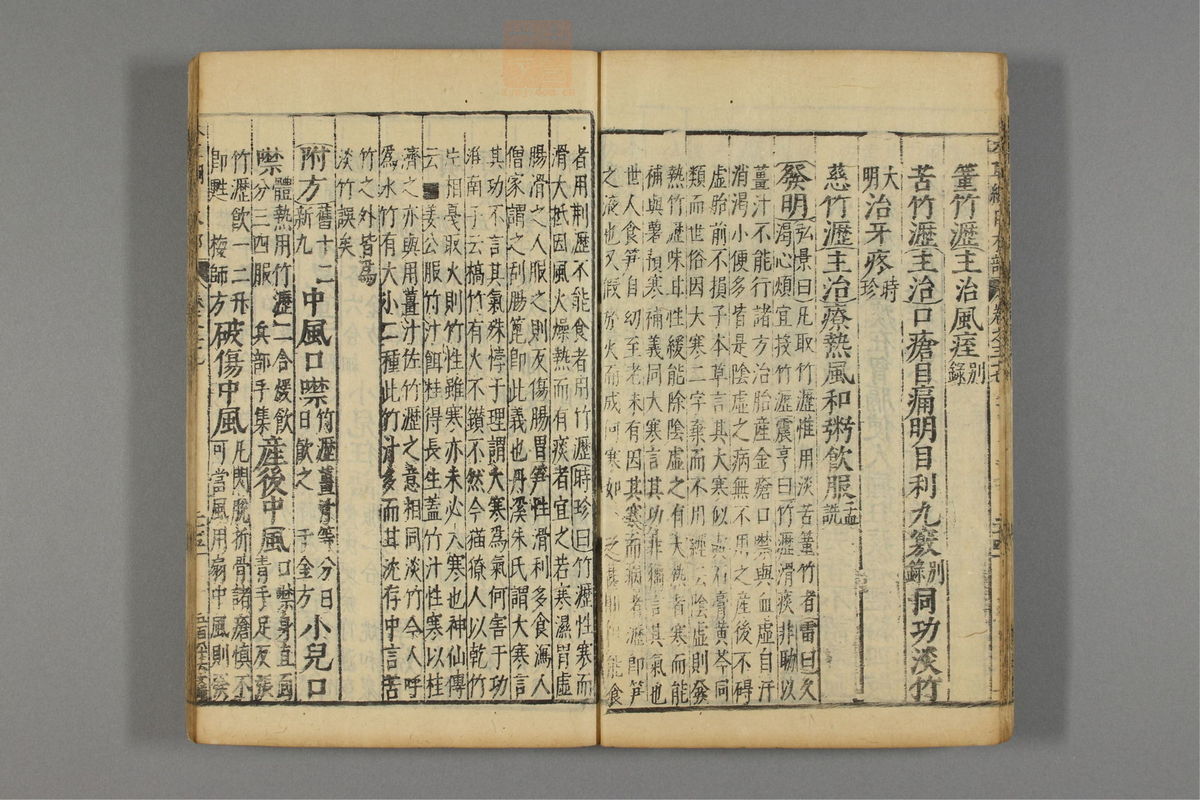 篁竹瀝主治風痓別錄
苦竹瀝主治口瘡目痛明目利九竅別錄同功淡竹
大明治牙疼時珍
慈竹瀝主治療熱風和粥飲服孟詵
發明弘景曰凡取竹瀝惟用淡苦篁竹者雷曰久
渴心煩宜投竹瀝震亨曰竹瀝滑痰非助以
薑汁不能行諸方治胎產金瘡口噤與血虛自汗
消渴小便多皆是陰虛之病無不用之產後不碍
虛胎前不損子本草言其大寒似與石膏黃芩同
類而世俗因大寒二字棄而不用經云陰虛則發
熱竹瀝味甘性緩能除陰虛之有大熱者寒而能
補與薯蕷寒補義同大寒言其功非獨言其氣也
世人食笋自幼至老未有因其寒而病者瀝即笋
之液也又假於火而成何寒如此之甚耶但能食
者用荆瀝不能食者用竹瀝時珍曰竹瀝性寒而
滑大抵因風火燥熱而有痰者宜之若寒濕胃虛
腸滑之人服之則反傷腸胃笋性滑利多食瀉人
僧家謂之刮腸箆即此義也丹溪朱氏謂大寒言
其功不言其氣殊悖于理謂大寒為氣何害于功
淮南子云槁竹有火不鑚不然今猫獠人以乾竹
片相戛取火則竹性雖寒亦未必大寒也神仙傳
云姜公服竹汁餌桂得長生蓋竹汁性寒以桂
濟之亦與用薑汁佐竹瀝之意相同淡竹今人呼
為水竹有大小二種此竹汁多而甘沈存中言苦
竹之外皆為
淡竹誤矣
附方舊十二新九中風口噤竹瀝薑汁等分日日飲之千金方小兒口
噤體熱用竹瀝二合煖飲分三四服兵部手集產後中風口噤身直面青手足反張
竹瀝飲一二升即甦梅師方破傷中風凡閃脫折骨諸瘡慎不可當風用扇中風則發